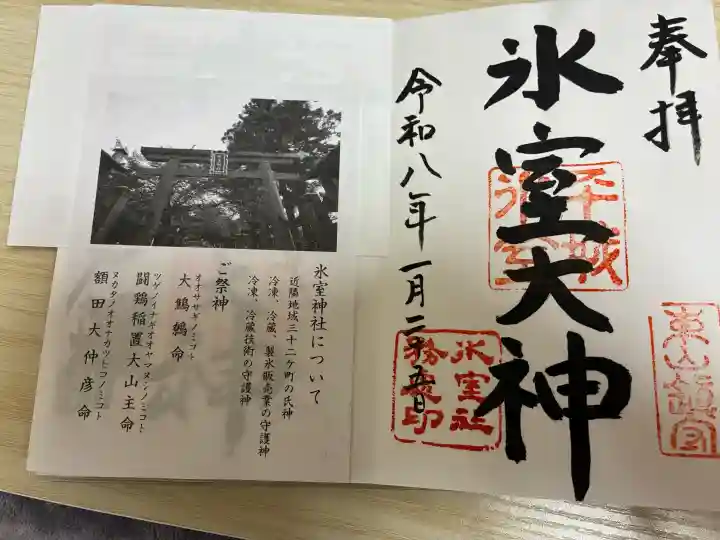 奉拝
氷室大神
令和八年一月二五日
平城
氷室
氷室社
務処印
東山鎮宮
氷室神社について
近隣地域三十二ケ町の氏神
冷凍、冷蔵、製氷販売業の守護神
冷凍、冷蔵技術の守護神
ご祭神
オオササギノミコト
大鷦鷯命
ツゲノイナギオオヤマヌシノミコト
闘鶏稲置大山主命
ヌカタノオオナカツヒコノミコト
額田大仲彦命